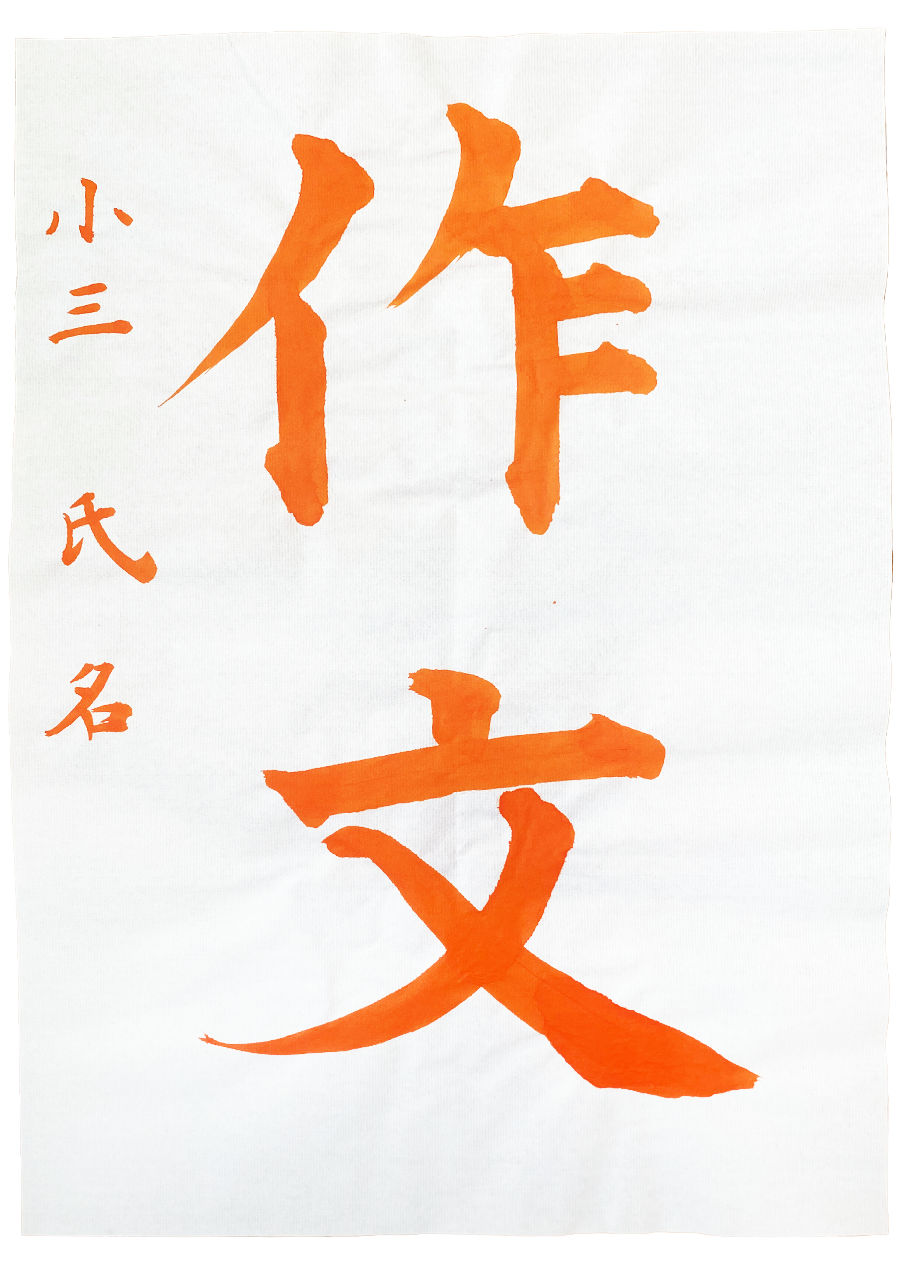 作文
小三 氏名